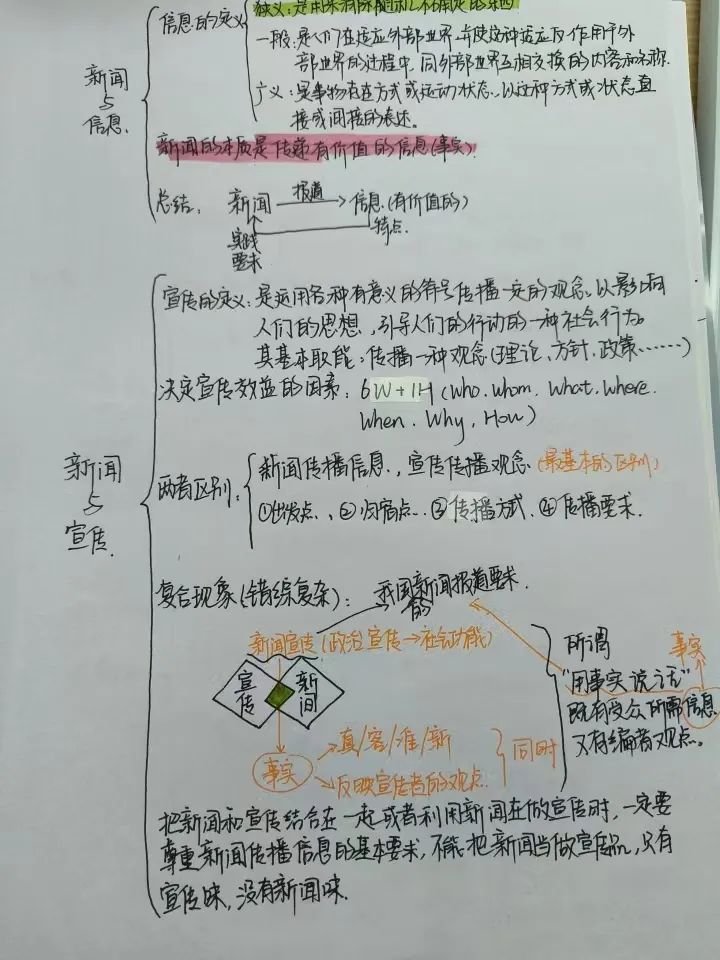 信息的定义
狭义：是用来消除随机不确定的东西
一般：是人们在适应外部世界，并使这种适应反作用于外
部世界的过程中，同外部世界互相交换的内容和名称.
广义：是事物存在方式或运动状态，以这种方式或状态直
接或间接的表述。
新闻
与
信息.
新闻的本质是传递有价值的信息(事实).
总结. 新闻 报道 信息.(有价值的)
实践
要求
特点.
宣传的定义：是运用各种有意义的符号传播一定的观念，以影响
人们的思想，引导人们的行动的一种社会行为。
其基本职能：传播一种观念(理论、方针、政策……)
决定宣传效益的因素：6W+1H(Who. whom. What. where.
When. Why. How)
新闻
与
宣传.
两者区别：
新闻传播信息.，宣传传播观念.(最基本的区别)
①出发点.、②归宿点..③传播方式.④传播要求.
复合现象(错综复杂)：
我国新闻报道要求.
的
新闻宣传(政治宣传→社会功能)
宣
传
新
闻
事实
真/客/准/新
反映宣传者的观点.
同时
所谓
"用事实说话"
既有受众所需信息
又有编者观点。
事实
把新闻和宣传结合在一起或者利用新闻在做宣传时，一定要
尊重新闻传播信息的基本要求，不能把新闻当做宣传品，只有
宣传味，没有新闻味.